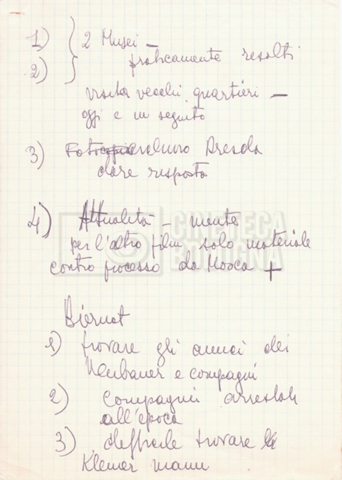 1) } 2 Musei —
2) } praticamente risolti
visita vecchi quartieri —
oggi e in seguito
3) Dresda
dare risposta
4) Attualità – niente
per l'altro film solo materiale
contro processo da Mosca +
CINETECA
BOLOGNA
Biernat
1) trovare gli amici dei
Neubauer e compagni
2) Compagni arrestati
all'epoca
3) difficile trovare
Klemer mann